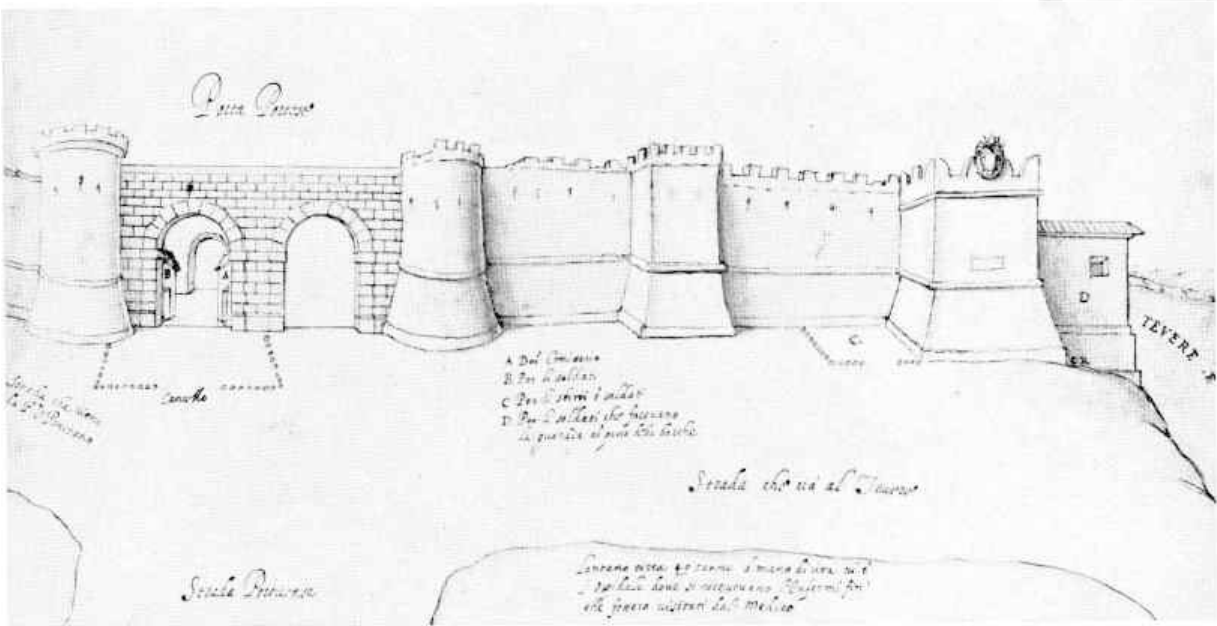 Porta Portese
B
A
D
C
TEVERE
A Del Comissario
B. Per li soldati
C Per li sbirri è soldati
D. Per li soldati che facevano
la guardia al passo delle barche
Strada che viene
da S. Pancratio
Cancello
Strada che va al Tevere
Strada Portuense
Lontano circa 40 canne à mano diritta
l'ospidale dove si ricevevano Infermi fin
che fossero visitati dal Medico